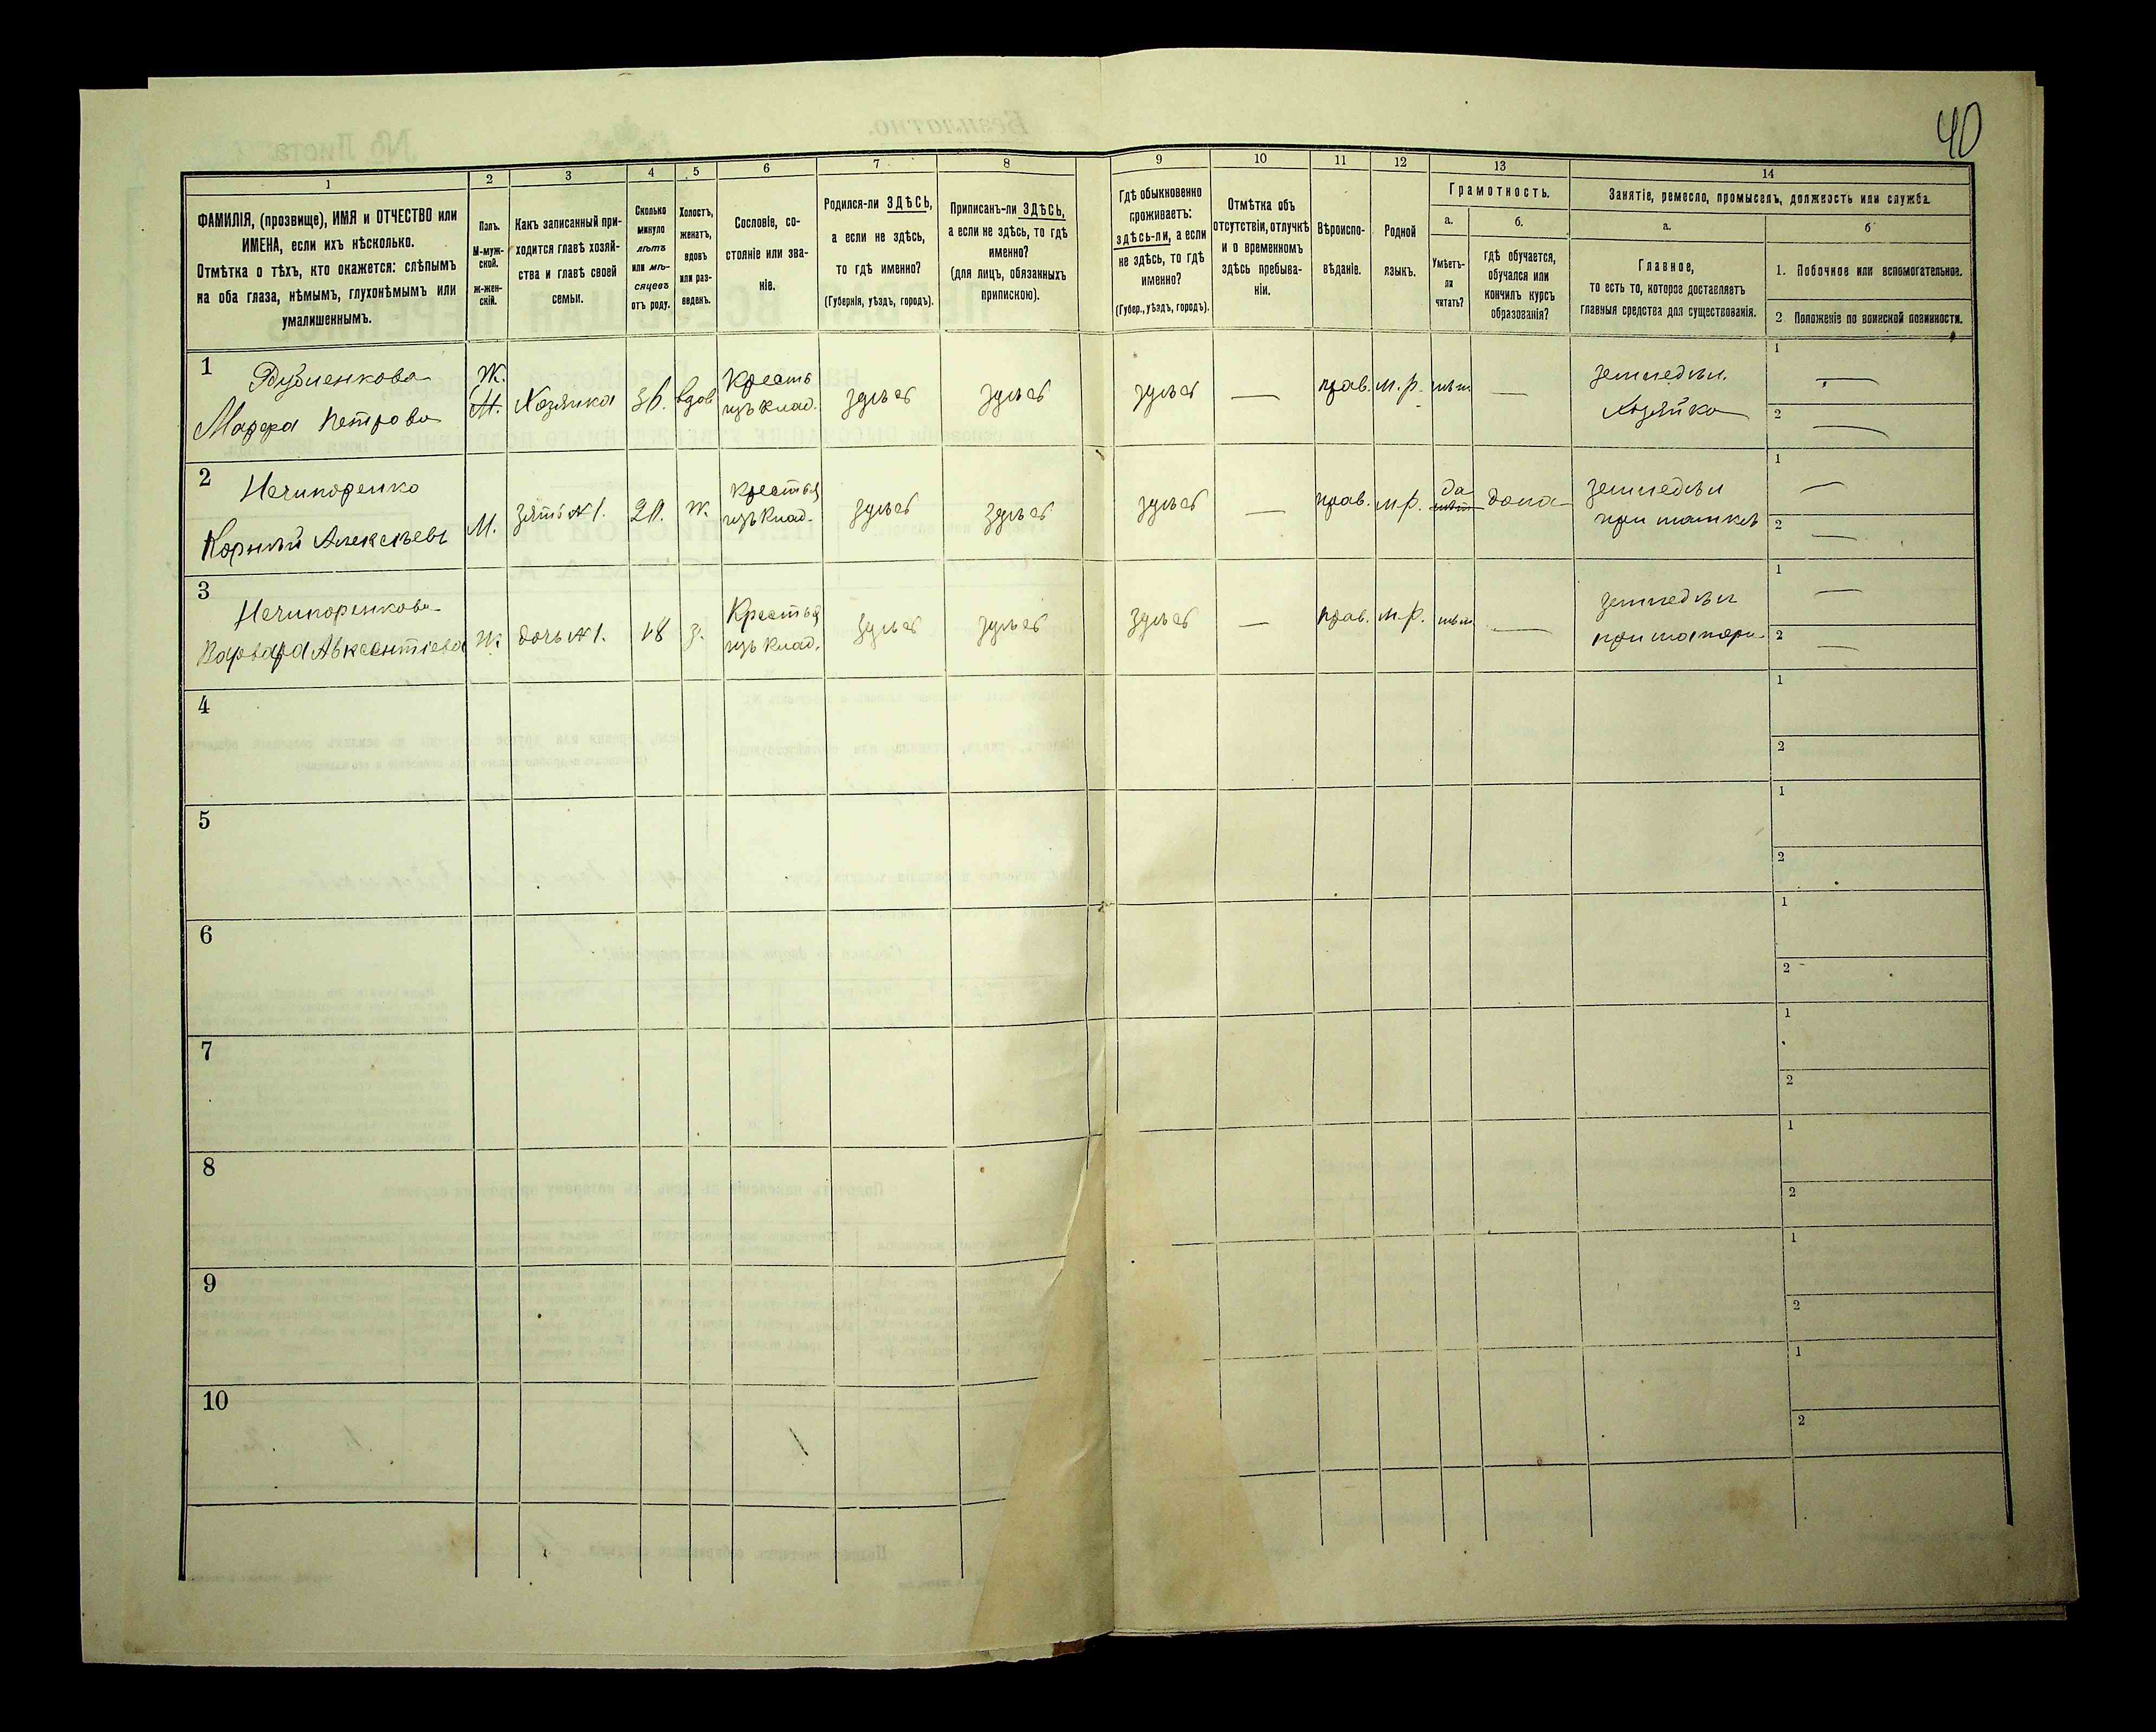 40
1
2
3
4
5
6
7
8
9
10
11
12
13
14
ФАМИЛІЯ, (прозвище), ИМЯ и ОТЧЕСТВО или
ИМЕНА, если ихъ нѣсколько.
Отмѣтка о тѣхъ, кто окажется: слѣпымъ
на оба глаза, нѣмымъ, глухонѣмымъ или
умалишеннымъ.
Полъ.
М-муж-
ской.
Ж-жен-
скій.
Какъ записанный при-
ходится главѣ хозяй-
ства и главѣ своей
семьи.
Сколько
минуло
лѣтъ
или мѣ-
сяцевъ
отъ роду.
Холостъ,
женатъ,
вдовъ
или раз-
веденъ.
Сословіе, со-
стояніе или зва-
ніе.
Родился-ли ЗДѢСЬ,
а если не здѣсь,
то гдѣ именно?
(Губернія, уѣздъ, городъ).
Приписанъ-ли ЗДѢСЬ,
а если не здѣсь, то гдѣ
именно?
(для лицъ, обязанныхъ
припискою).
Гдѣ обыкновенно
проживаетъ:
здѣсь-ли, а если
не здѣсь, то гдѣ
именно?
(Губер., уѣздъ, городъ).
Отмѣтка объ
отсутствіи, отлучкѣ
и о временномъ
здѣсь пребыва-
ніи.
Вѣроиспо-
вѣданіе.
Родной
языкъ.
Грамотность.
а.
Умѣетъ-
ли
читать?
б.
гдѣ обучается,
обучался или
кончилъ курсъ
образованія?
Занятіе, ремесло, промыселъ, должность или служба.
а.
Главное,
то есть то, которое доставляетъ
главныя средства для существованія.
б
1. Побочное или вспомогательное.
2 Положеніе по воинской повинности.
1
Марфа Петрова
Ж.
М.
Хозяйка
36.
вдов
Кресть
изъ влад.
здѣсь
здѣсь
здѣсь
—
прав.
м.р.
нѣт
—
земледѣл.
Хозяйка
1 —
2 —
2
Нечипоренко
Корній Алексѣевъ
М.
зять №1.
20.
ж.
Крестья
изъ влад.
здѣсь
здѣсь
здѣсь
—
прав.
м.р.
да
нѣт
дома
земледѣл
1 —
2 —
3
Нечипоренкова
Варвара Авксентіева
Ж.
дочь №1.
18
з.
Крестья
изъ влад.
здѣсь
здѣсь
здѣсь
—
прав.
м.р.
нѣт
—
земледѣл
при матери
1 —
2 —
4
1
2
5
1
2
6
1
2
7
1
2
8
1
2
9
1
2
10
1
2